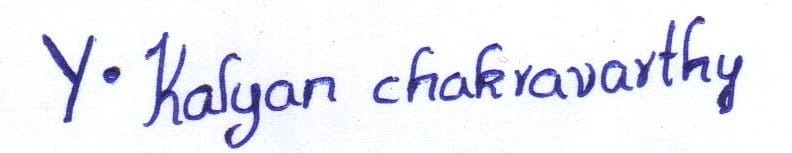 Y. Kalyan chakravarthy